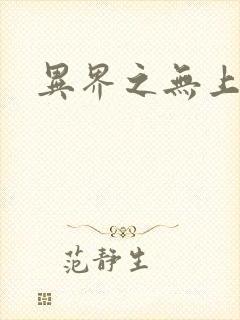 異界之無上
范靜生